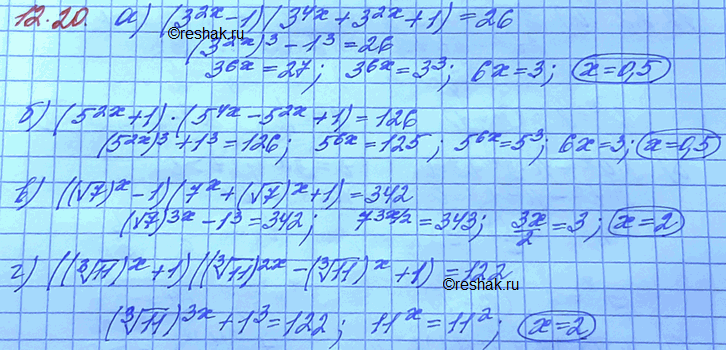 12.20. а) (3^{2x}-1)(3^{4x}+3^{2x}+1)=26
©reshak.ru
(3^{2x})^3-1^3=26
3^{6x}=27; 3^{6x}=3^3; 6x=3; x=0,5
б) (5^{2x}+1)·(5^{4x}-5^{2x}+1)=126
(5^{2x})^3+1^3=126; 5^{6x}=125; 5^{6x}=5^3; 6x=3; x=0,5
в) ((√7)^x-1)(7^x+(√7)^x+1)=342
(√7)^{3x}-1^3=342; 7^{3x/2}=343; 3x/2=3; x=2
г) ((∛11)^x+1)((∛11)^{2x}-(∛11)^x+1)=122
©reshak.ru
(∛11)^{3x}+1^3=122; 11^x=11^2; x=2